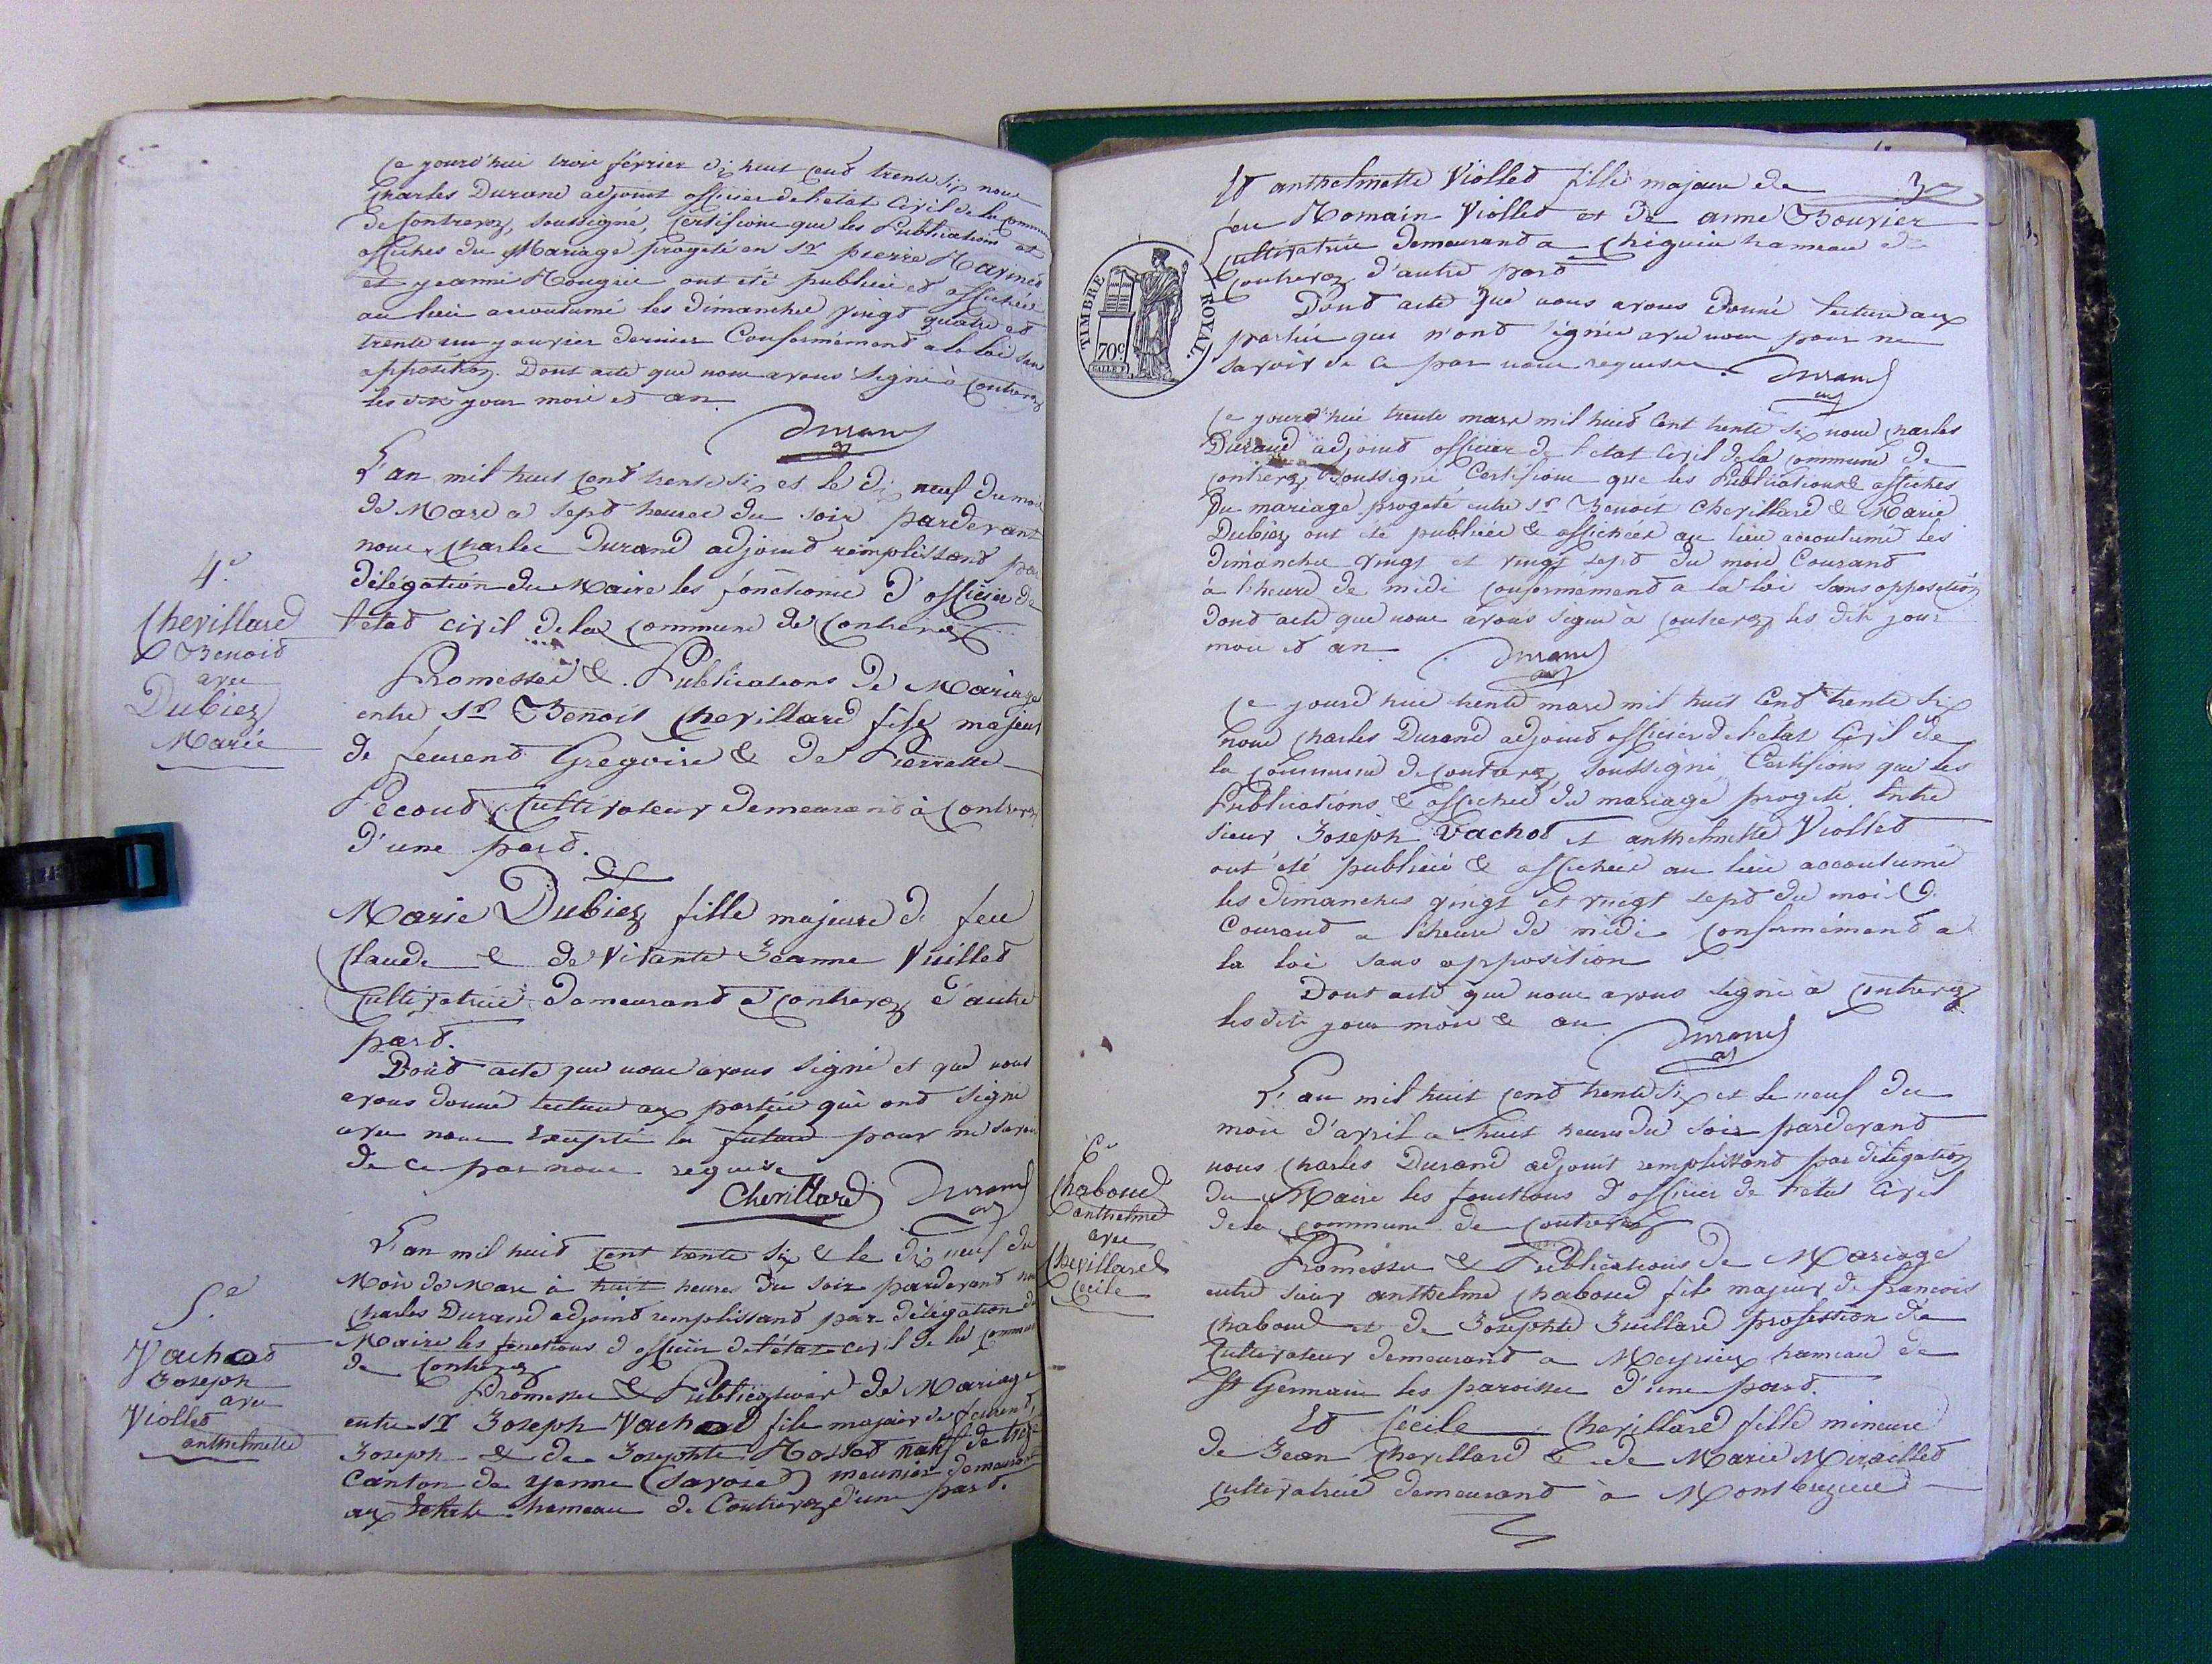 Ce yourd'hui trois février dix huit cend trente six nous
Charles Durand adjoint officier de letat Civil de la commune
de Contrevoz, soussigné, Certifions que les Publications et
affiches du Mariage progeté en Sr pierre
et yeanne ont été publiée et affichée
au lieu accoutumé les Dimanches vingt quatre et
trente un yanvier dernier Conformément a la loi sans
opposition. Dont acte que nous avons signé à Contrevoz
les dits your mois et an.
Durand
adj
L'an mil huit cend trente six et le dix neuf du mois
de Mars a sept heures du soir pardevant
nous Charles Durand adjoint remplissant par
délégation du Maire les fonctions d'officier de
l'etat civil de la Commune de Contrevoz
4.e
Chevillard
Benoit
avec
Dubiez
Marie
Promesses & Publications de Mariage
entre Sr Benoit Chevillard fils majeur
de feurent Gregoire & de Pierrette
Pecoud Cultivateur demeurand à Contrevoz
d'une pard.
&
Marie Dubiez fille majeure de feu
Claude & de Vivante Jeanne Vuilled
Cultivatrice demeurand a Contrevoz d'autre
pard.
Dond acte que nous avons signé et que nous
avons donné lecture aux parties qui ond signé
avec nous Excepté la future pour ne savoir
de ce par nous requise
Chevillard Durand
adj
L'an mil huit cent trente six & le dix neuf du
Mois de Mars à huit heures du soir pardevand nous
Charles Durand adjoint remplissant par délégation du
Maire les fonctions d'officier de l'état civil de la Commune
de Contrevoz
5.e
Vachod
Joseph
avec
Viollet
anthelmette
Promesse & Publication de Mariage
entre Sr Joseph Vachod fils majeur de feurent,
Joseph & de Josephte Rossed natif de
Canton de yenne (Savoie) meunier demeurant
aux hameau de Contrevoz d'une pard.
3e
Et anthelmette Viollet fille majeure de
feu Romain Viollet et de anne Bouvier
Cultivatrice demeurand a Chignin hameau de
Contrevoz d'autre pard
TIMBRE ROYAL.
70c
Dond acte que nous avons donné lecture aux
parties qui n'ond signée avec nous pour ne
savoir de ce par nous requises. Durand
adj
Ce yourd'hui trente mars mil huit Cent trente six nous Charles
Durand adjoint officier de l'etat Civil de la Commune de
Contrevoz Soussigné Certifions que les Publications & affiches
Du mariage progeté entre Sr Benoit Chevillard & Marie
Dubiez ont été publiée & affichée au lieu accoutumé les
Dimanches vingt et vingt sept du mois Courand
à l'heure de midi Conformement a la loi Sans opposition
Dond acte que nous avons Signé à Contrevoz les dits jour
mois et an.
Durand
adj
Ce yourd'hui trente mars mil huit Cend trente six
nous Charles Durand adjoint officier de l'état Civil de
la Commune de Contrevoz soussigné Certifions que les
Publications & affiches du mariage progeté Entre
Sieur Joseph Vachod et anthelmette Viollet
ont été publiée & affichée au lieu accoutumé
les dimanches vingt et vingt sept du mois
Courand a l'heure de midi conformémend a
la loi sans opposition
Dont acte que nous avons signé a Contrevoz
les dits jour mois & an.
Durand
adj
L'an mil huit cend trente six et le neuf du
mois d'avril a huit heures du soir pardevand
nous Charles Durand adjoint remplissand par délégation
du Maire les fonctions d'officier de l'etat Civil
de la Commune de Contrevoz
6.e
Chaboud
anthelme
avec
Chevillard
Cecile
Promesse & Publications de Mariage
entre sieur anthelme Chaboud fils majeur de francois
Chaboud et de Josephte Juillard profession de
Cultivateur demeurand a Meyrieux hameau de
St Germain les paroisses d'une pard.
Et Cécile Chevillard fille mineure
de Jean Chevillard & de Marie
cultivatrice demeurand à Montbreyzieu